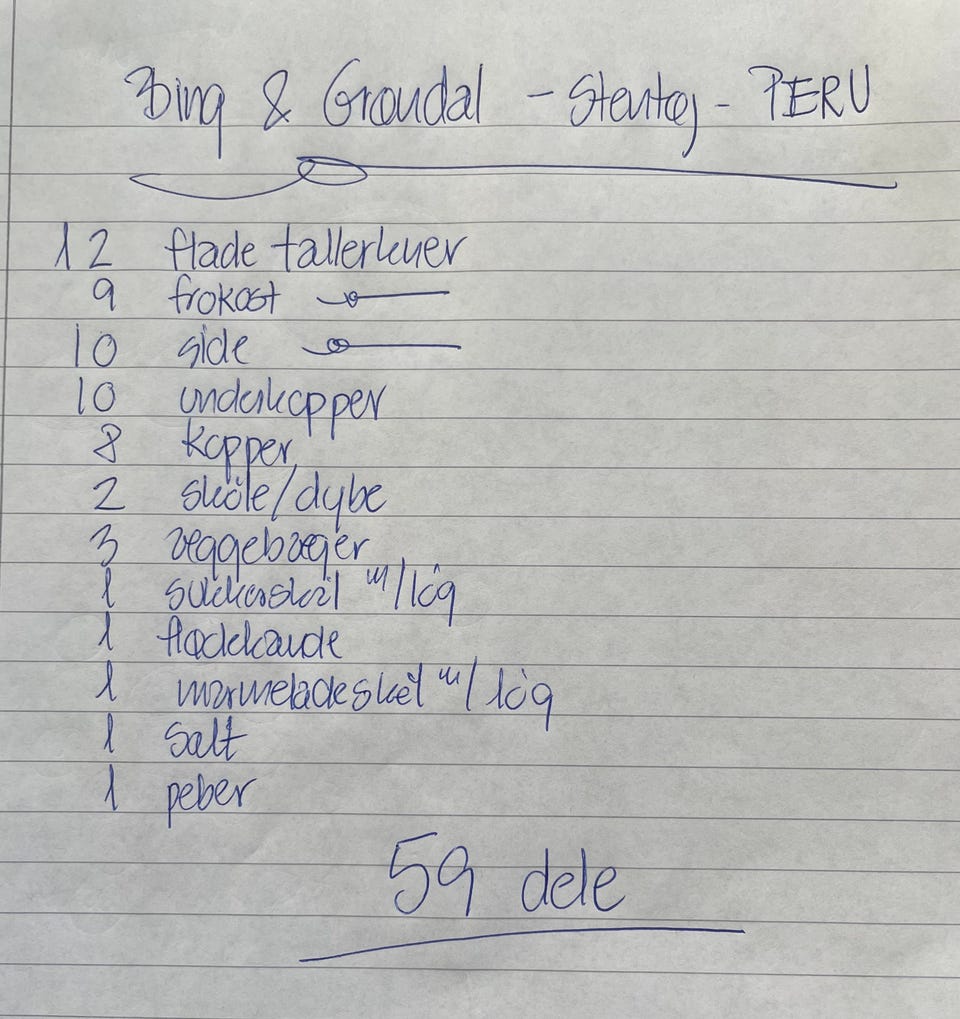 Bing & Grøndal - Stentøj - PERU
12 flade tallerkener
9 frokost
10 side
10 underkopper
8 kopper
2 skåle/dybe
3 æggebæger
1 sukkerskål m/låg
1 flødekande
1 marmeladeskål m/låg
1 salt
1 peber
59 dele